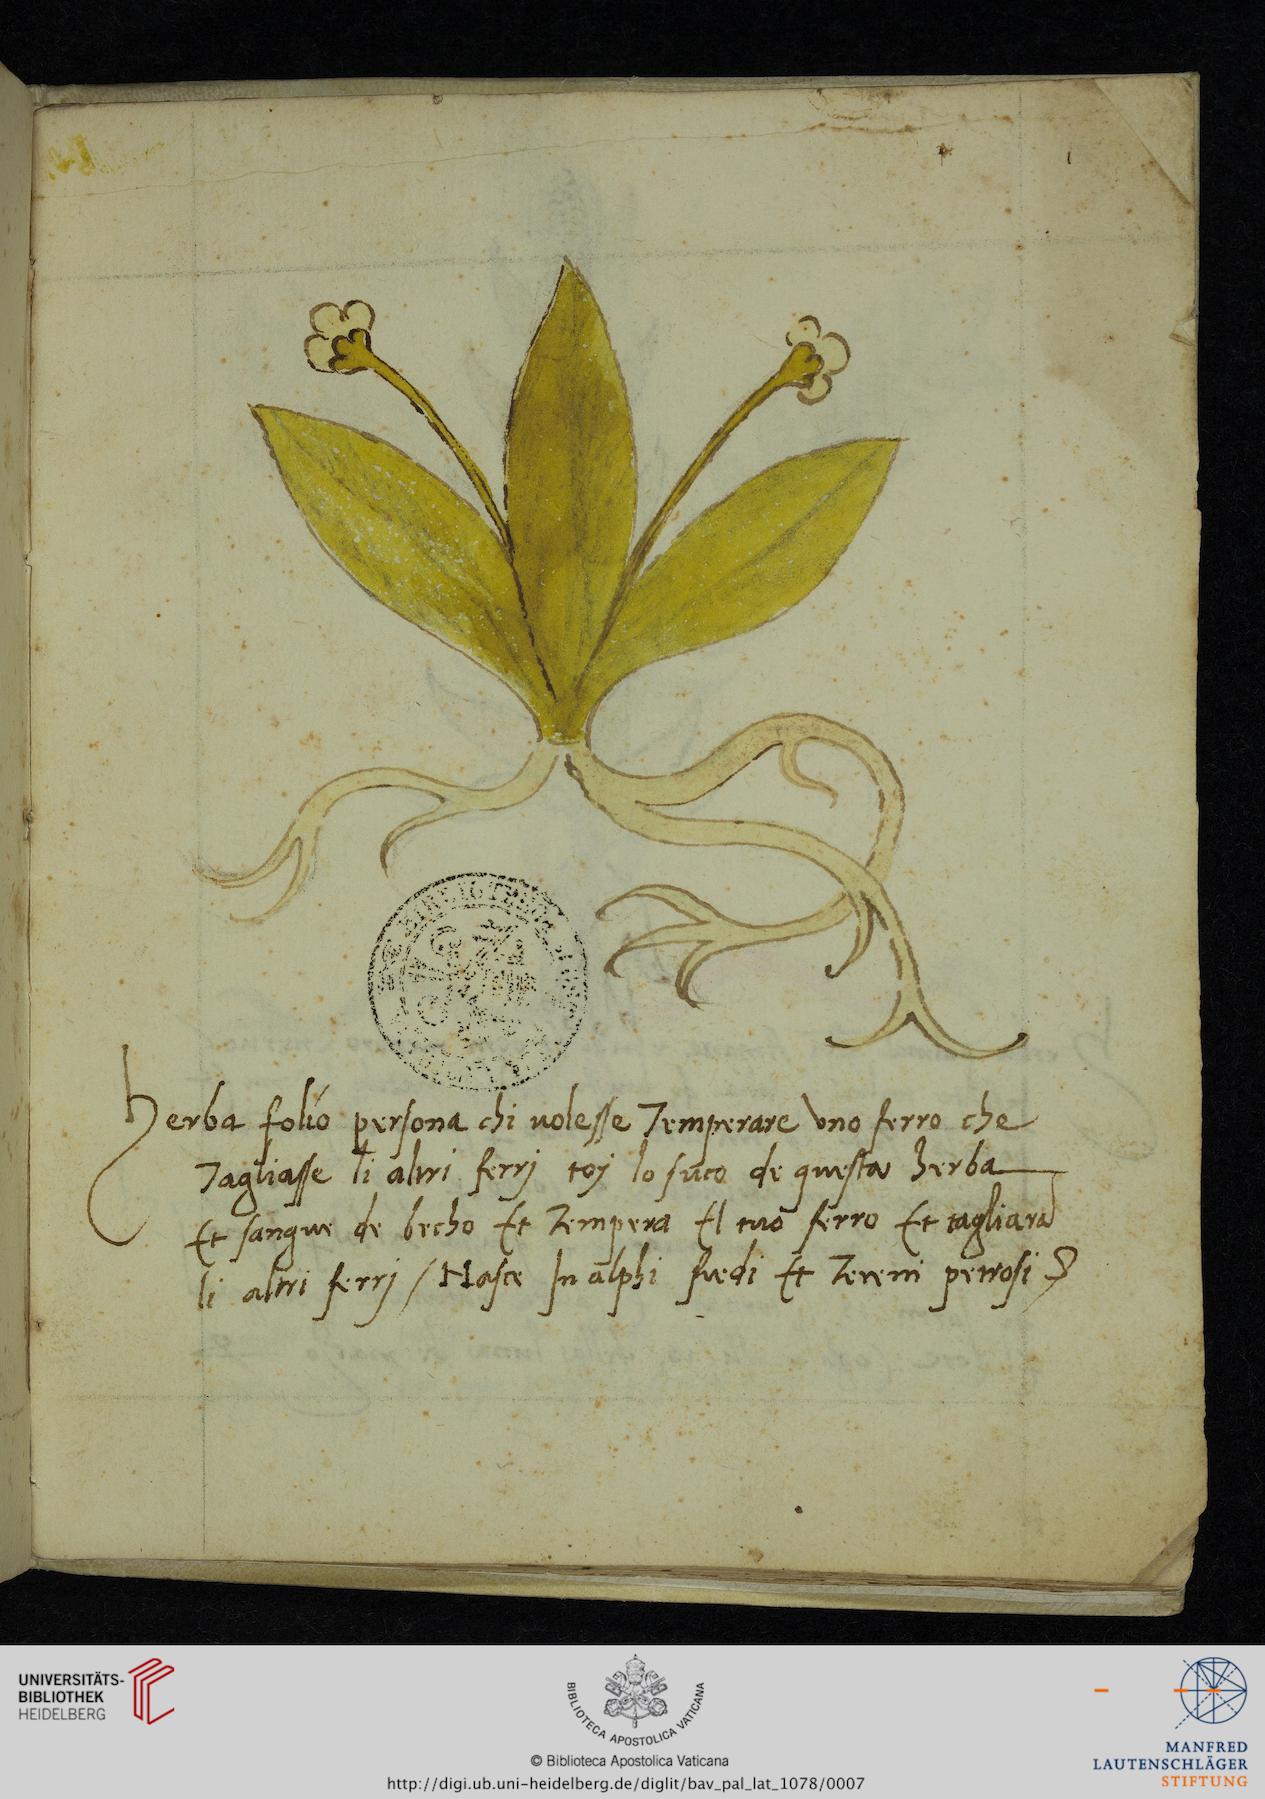 1
herba folio persona chi uolesse Temperare vno ferro che
Tagliasse li altri ferrj toj lo suco de questa herba
Et sangue de becho Et Tempera El tuo ferro Et tagliara
li altri ferrj / Nasce In alphi fredi Et Tereni petrosi
UNIVERSITÄTS-
BIBLIOTHEK
HEIDELBERG
BIBLIOTECA APOSTOLICA VATICANA
© Biblioteca Apostolica Vaticana
http://digi.ub.uni-heidelberg.de/diglit/bav_pal_lat_1078/0007
MANFRED
LAUTENSCHLÄGER
STIFTUNG